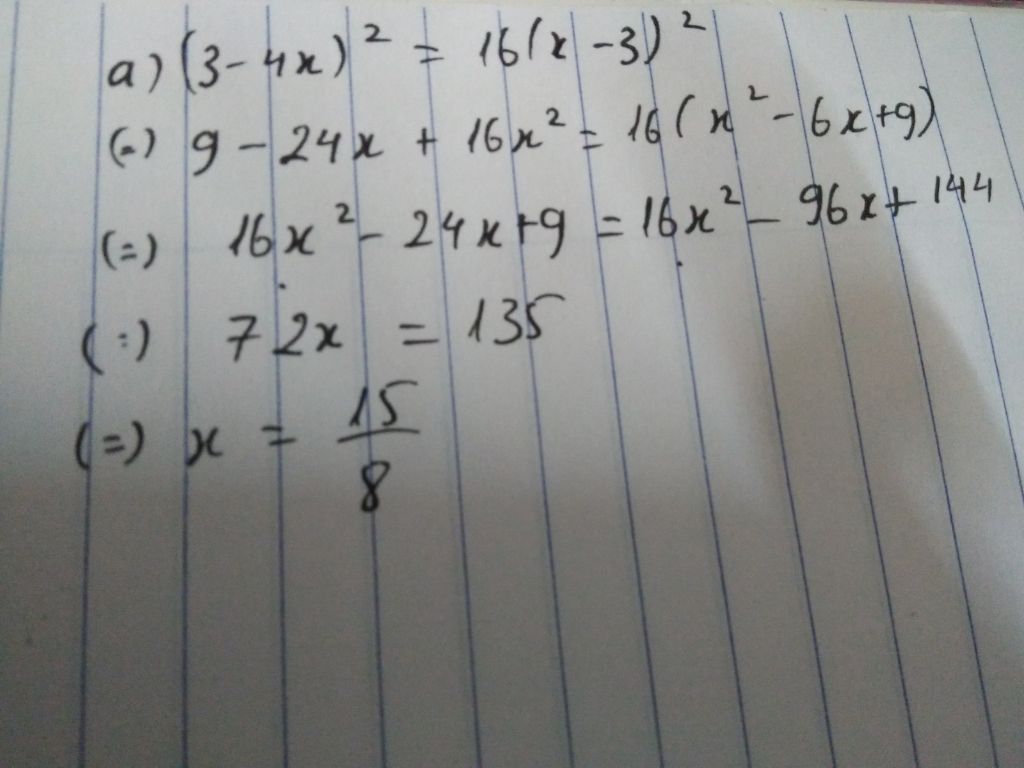 a) (3-4x)² = 16(x-3)²
(=) 9-24x + 16x² = 16(x²-6x+9)
(=) 16x²-24x+9 = 16x²-96x+144
(=) 72x = 135
(=) x = 15/8